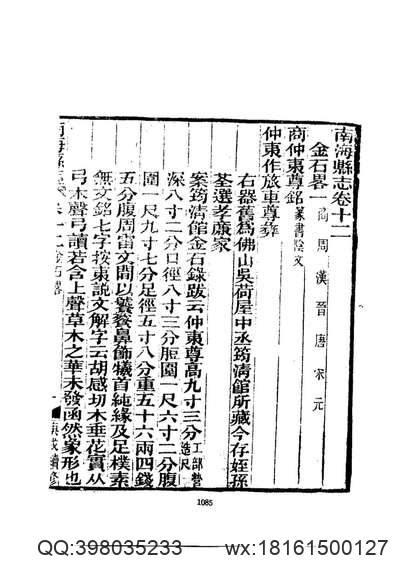 南海縣志卷十二
金石畧一 商周漢晉唐宋元
商仲東尊銘 篆書陰文
仲東作旅車尊彝
右器舊為佛山吳荷屋中丞筠清館所藏今存姪孫
荃選孝廉家
案筠清館金石錄跋云仲東尊高九寸三分 工部營造尺
深八寸二分口徑八寸三分脰圍一尺六寸二分腹
圍一尺九寸七分足徑五寸八分重五十六兩四錢
五分腹周雷文間以饕餮鼻飾犧首純緣及足樸素
無文銘七字按東說文解字云胡感切木垂花實从
弓木聲弓讀若含上聲草木之華未發函然象形也
南海縣志 卷十二 金石畧
一
庚戌續修
1085
QQ:398035233 wx:18161500127